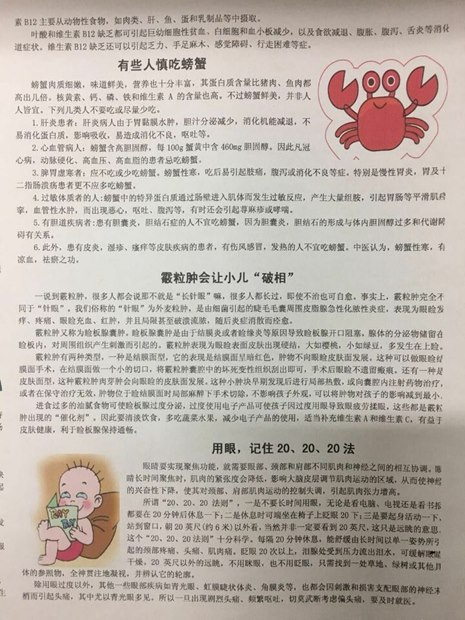 素 B12 主要从动物性食物，如肉类、肝、鱼、蛋和乳制品等中摄取。
叶酸和维生素 B12 缺乏都可引起巨幼细胞性贫血、白细胞和血小板减少，以及食欲减退、腹胀、腹泻、舌炎等消化
道症状。维生素 B12 缺乏还可以引起乏力、手足麻木、感觉障碍、行走困难等症。
有些人慎吃螃蟹
螃蟹肉质细嫩，味道鲜美，营养也十分丰富，其蛋白质含量比猪肉、鱼肉都
高出几倍，核黄素、钙、磷、铁和维生素 A 的含量也高。不过螃蟹鲜美，并非人
人皆宜，下列几类人不要吃或尽量少吃。
1.肝炎患者：肝炎病人由于胃黏膜水肿，胆汁分泌减少，消化机能减退，不
易消化蛋白质，影响吸收，易造成消化不良，呕吐等。
2.心血管病人：螃蟹含高胆固醇，每 100g 蟹黄中含 460mg 胆固醇。因此凡冠
心病，动脉硬化、高血压、高血脂的患者忌吃螃蟹。
3.脾胃虚寒者：应不吃或少吃螃蟹。螃蟹性寒，吃后易引起肢痛，腹泻或消化不良等症。特别是慢性胃炎，胃及十
二指肠溃疡患者更不应多吃螃蟹。
4.过敏体质者的人：吃螃蟹中的特异蛋白质通过肠壁进入肌体而发生过敏反应，产生大量组胺，引起胃肠等平滑肌痉
挛，血管性水肿，而出现恶心，呕吐、腹泻等，有时还会引起荨麻疹或哮喘。
5.有胆道疾病者：患有胆囊炎，胆结石症的人不宜吃螃蟹，因为胆囊炎，胆结石的形成与体内胆固醇过多和代谢障
碍有关系。
6.此外，患有皮炎，湿疹、瘙痒等皮肤疾病的患者，有伤风感冒，发热的人不宜吃螃蟹。中医认为，螃蟹性寒，有
凉血，祛瘀之功。
霰粒肿会让小儿“破相”
一说到霰粒肿，很多人都会说那不就是“长针眼”嘛，很多人都长过，即使不治也可自愈，事实上，霰粒肿完全不
同于“针眼”，我们俗称的“针眼”为外麦粒肿，是由细菌引起的睫毛毛囊周围皮脂腺急性化脓性炎症，表现为眼睑发
痒、疼痛、眼睑充血、红肿，并且局限甚至破溃流脓，随后炎症消散而痊愈。
霰粒肿又称为睑板腺囊肿。睑板腺囊肿是由于结膜炎或者睑缘炎等原因导致睑板腺开口阻塞，腺体的分泌物储留在
睑板内，对周围组织产生刺激而引起的。霰粒肿表现为眼睑表面皮肤出现硬结，大如樱桃，小如绿豆，多发生在上睑。
霰粒肿有两种类型，一种是结膜面型，它的表现是结膜面呈暗红色，肿物不向眼睑皮肤面发展，这种可以做眼睑结
膜面手术，在结膜面做一个小的切口，将霰粒肿囊腔中的坏死变性组织刮出即可，手术后眼睑不遗留瘢痕，还有一种是
皮肤面型，这种霰粒肿肉芽肿会向眼睑的皮肤面发展，这种小肿块早期发现后进行局部热敷，或向囊腔内注射药物治疗，
或者在保守治疗无效，肿物位于睑结膜面时局部麻醉下手术切除，不影响孩子外观，可以将肿物对孩子的影响减到最小。
进食过多的油腻食物可使睑板腺过度分泌，过度使用电子产品可使孩子因过度用眼导致眼疲劳揉眼，这些都是霰粒
肿出现的“催化剂”。因此要清淡饮食，多吃蔬菜水果，减少电子产品的使用，适当补充维生素 A 和维生素 C，有益于
皮肤健康，利于睑板腺保持通畅。
用眼，记住 20、20、20 法
眼睛要实现聚焦功能，就需要眼部、颈部和肩部不同肌肉和神经之间的相互协调。眼
睛长时间聚焦时，肌肉的紧张度会降低，影响大脑皮层调节肌肉运动的区域，从而使神经
的兴奋性下降，使其对颈部、肩部肌肉运动的控制失调，引起肌肉张力增高。
所谓“20、20、20 法则”，一是不要长时间用眼，无论是看电脑、电视还是看书报
都要在 20 分钟后休息一下；二是休息时可端坐在椅子上眨眼 20 下；三是要起身活动一下，
站到窗口，朝 20 英尺（约 6 米）以外看，当然并非一定要看到 20 英尺，这只是远眺的意思。
这个“20、20、20 法则”十分科学。每隔 20 分钟休息，能舒缓由长时间以单一姿势所引
起的颈部疼痛、头痛、肌肉痛。眨眼 20 次以上，泪腺处受到压力流出泪水，可缓解眼
干燥，20 英尺以外的远眺，不用眯眼，也不用眨眼，只需找到一处草地、绿树或其他具
体的参照物，全神贯注地凝视，并辨认它的轮廓。
除用眼过度以外，其他一些眼部疾病如青光眼、虹膜睫状体炎、角膜炎等，也都会因刺激和损害支配眼部的神经末
梢而引起头痛，其中尤以青光眼多见。所以一旦出现剧烈头痛、频繁呕吐，切莫武断考虑偏头痛，要及时就医。